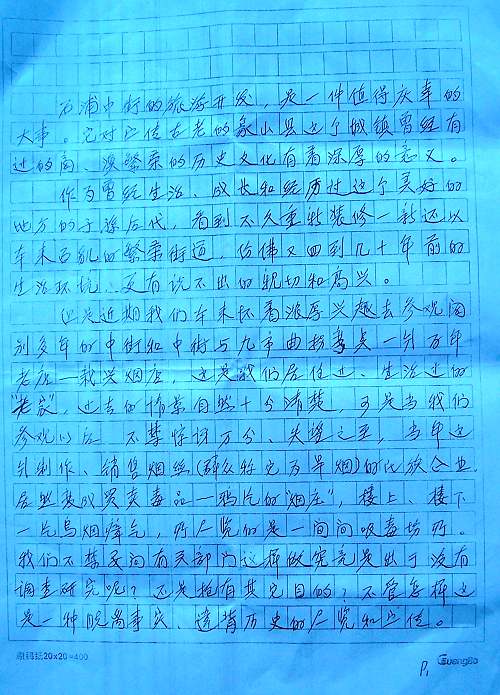 石浦中街的旅游开发，是一件值得庆幸的
大事。它对宣传古老的象山县这个城镇曾经有
过的商、渔繁荣的历史文化有着深厚的意义。
作为曾经生活、成长和经历过这个美好的
地方的子孙后代，看到不久重新装修一新还以
本来面貌的繁荣街道，仿佛又回到几十年前的
生活环境，更有说不出的亲切和高兴。
但是近期我们本来怀着浓厚兴趣去参观阔
别多年的中街和中街与九市曲拐弯点一爿百年
老店—栽兴烟店，这是我们居住过、生活过的
"老家"，过去的情景自然十分清楚，可是当我们
参观以后 不禁惊讶万分、失望之至，当年这
爿制作、销售烟丝(群众称它为旱烟)的民族企业
居然变成买卖毒品—鸦片的"烟店"，楼上、楼下
一片乌烟瘴气，所展览的是一间间吸毒场所。
我们不禁要问有关部门这样做究竟是出于没有
调查研究呢？还是抱有其它目的？不管怎样这
是一种脱离事实、违背历史的展览和宣传。
20×20=400
GuangBo
P1